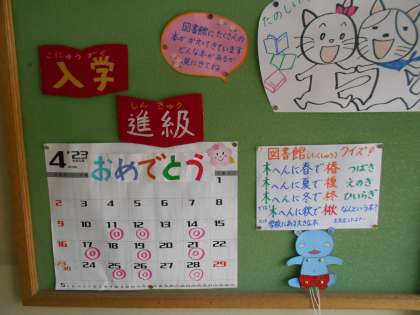 にゅう がく
入学
図書館にたくさんの
本がかえてきています
どんな本があるか
見にきてね
たのしい
しん きゅう
進級
4 '23
おめでとう
1
2 3 4 5 6 7 8
9 10 11 12 13 14 15
16 17 18 19 20 21 22
23/30 24 25 26 27 28 29
5
図書館 クイズ
木へんに春で椿 つばき
木へんに夏で榎 えのき
木へんに冬で柊 ひいらぎ
木へんに秋で楸 なんという木?
学校にある大きな木